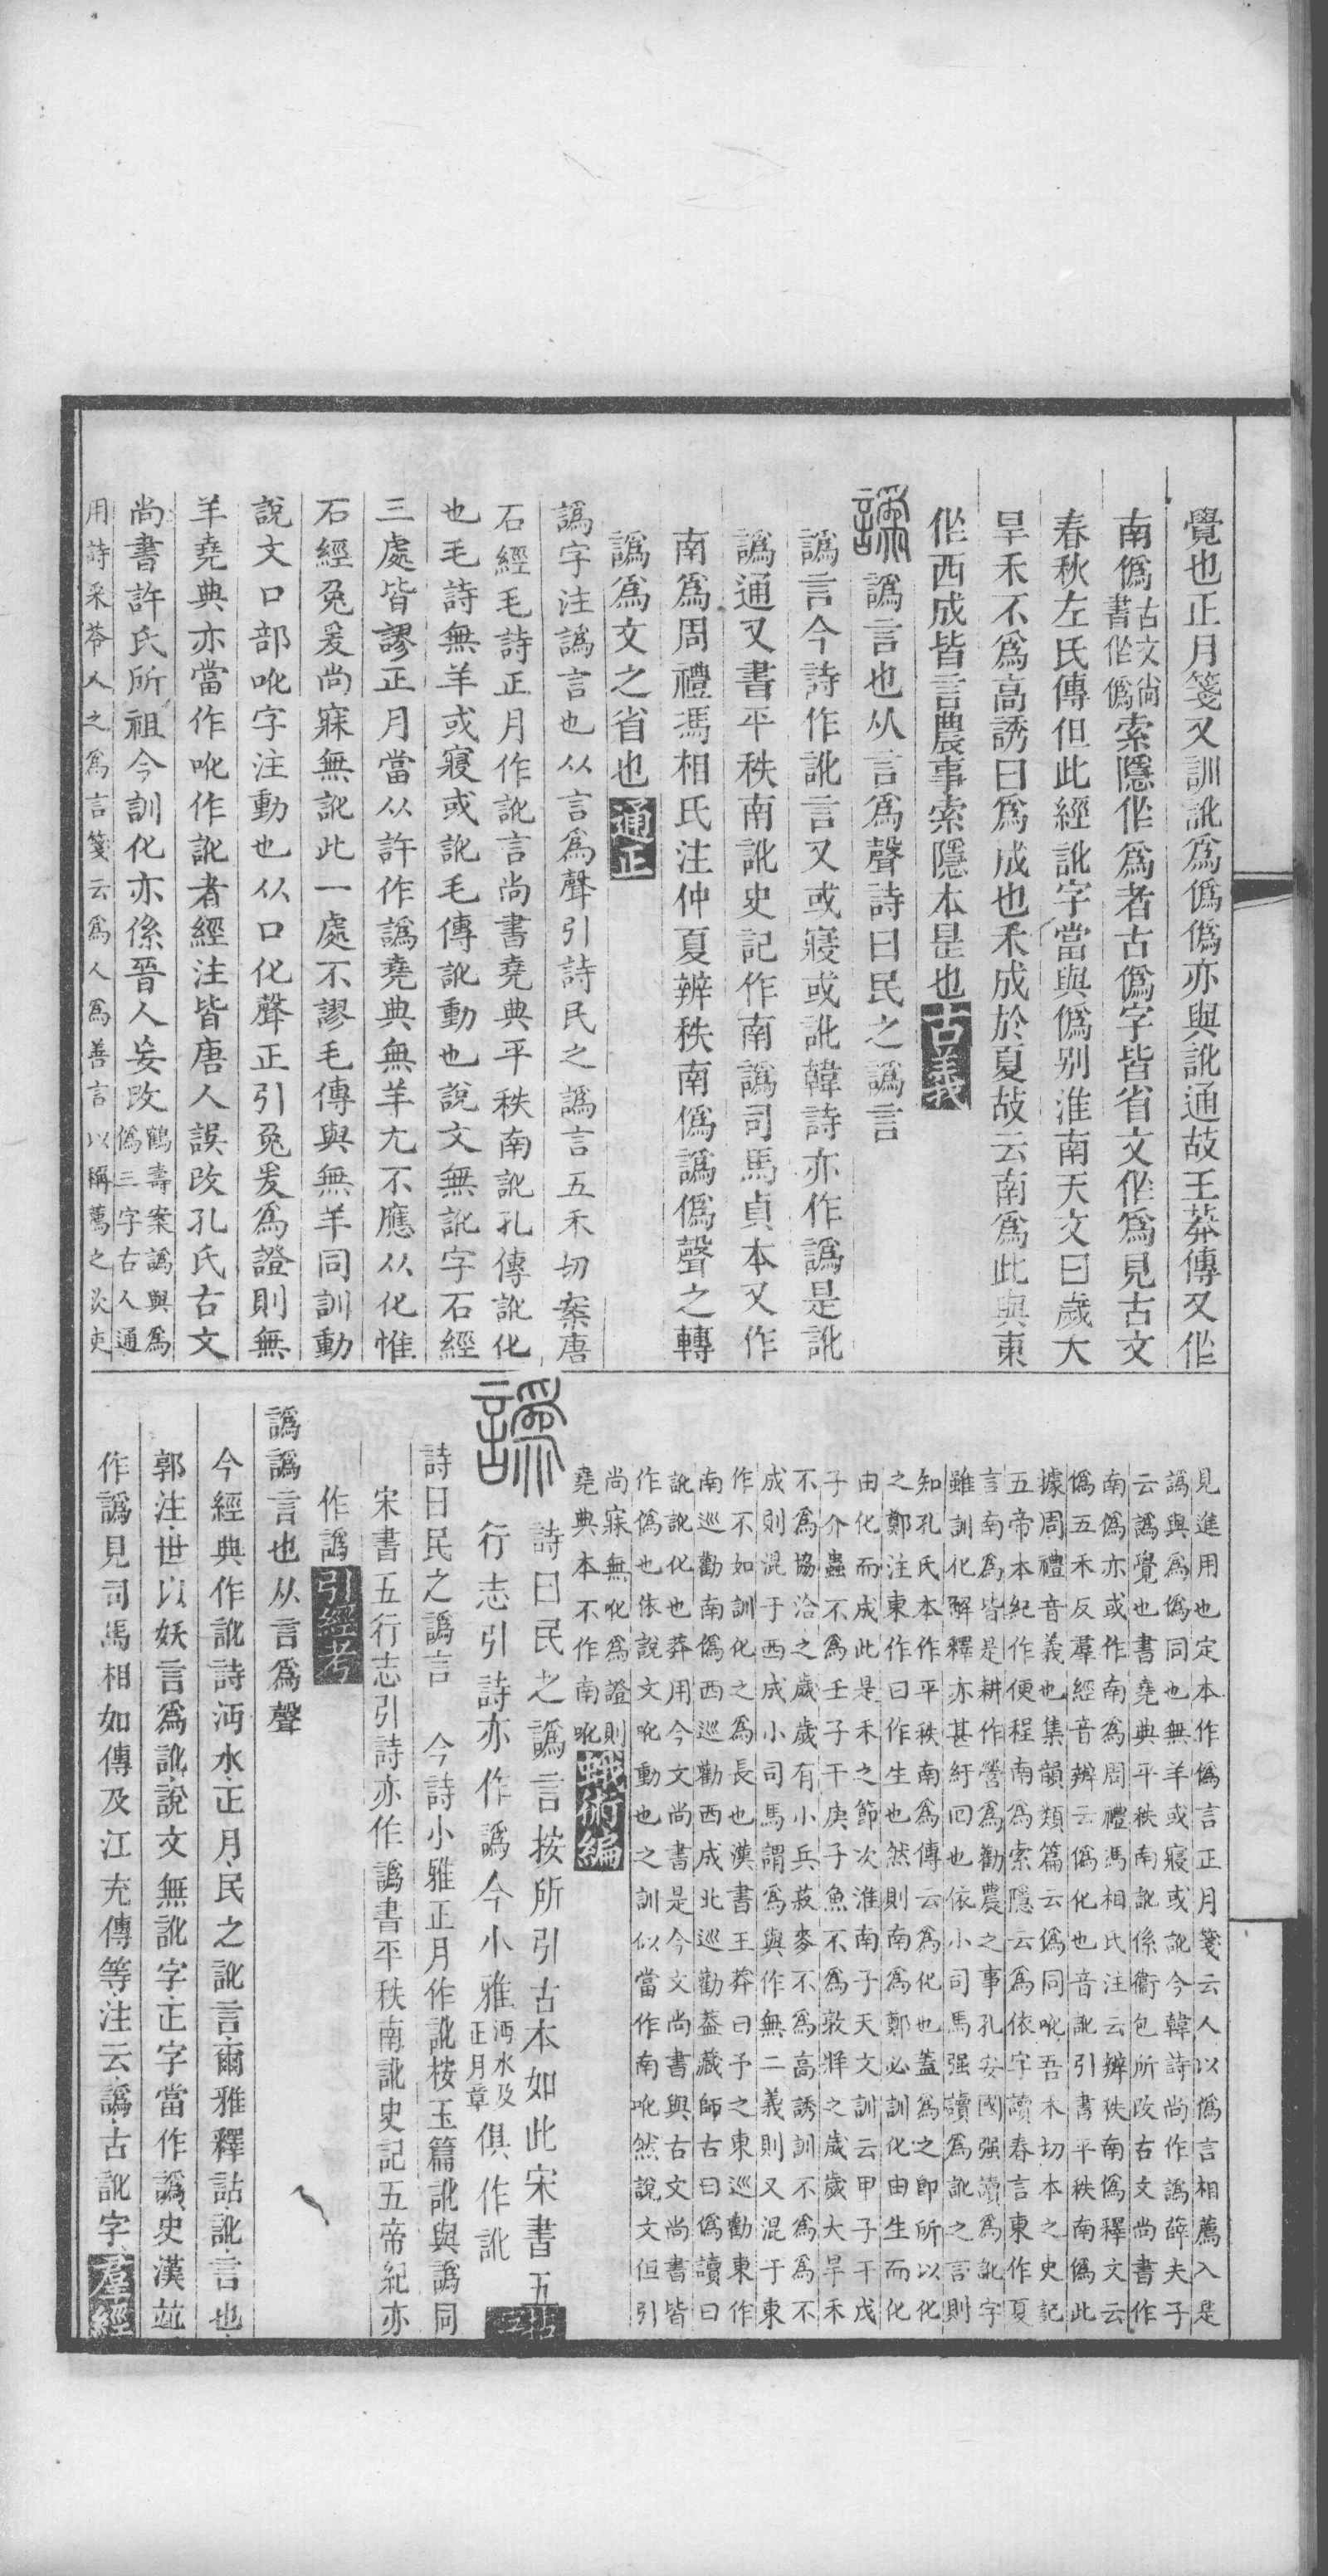 覺也正月箋又訓訛爲僞僞亦與訛通故王莽傳又作
南僞古文尚書作僞索隱作爲者古僞字皆省文作爲見古文
春秋左氏傳但此經訛字當與僞別淮南天文曰歲大
旱禾不爲高誘曰爲成也禾成於夏故云南爲此與東
作西成皆言農事索隱本是也古義
譌譌言也从言爲聲詩曰民之譌言
譌言今詩作訛言又或寢或訛韓詩亦作譌是訛
譌通又書平秩南訛史記作南譌司馬貞本又作
南爲周禮馮相氏注仲夏辨秩南僞譌僞聲之轉
譌爲文之省也通正
譌字注譌言也从言爲聲引詩民之譌言五禾切案唐
石經毛詩正月作訛言尚書堯典平秩南訛孔傳訛化
也毛詩無羊或寢或訛毛傳訛動也說文無訛字石經
三處皆謬正月當从許作譌堯典無羊尢不應从化惟
石經兔爰尚寐無訛此一處不謬毛傳與無羊同訓動
說文口部吪字注動也从口化聲正引兔爰爲證則無
羊堯典亦當作吪作訛者經注皆唐人誤改孔氏古文
尚書許氏所祖今訓化亦係晉人妄改鶴壽案譌與爲僞三字古人通
用詩采苓人之爲言箋云爲人爲善言以稱薦之欲使
見進用也定本作僞言正月箋云人以僞言相薦入是
譌與爲僞同也無羊或寢或訛今韓詩尚作譌薛夫子
云譌覺也書堯典平秩南訛係衞包所改古文尚書作
南僞亦或作南爲周禮馮相氏注云辨秩南僞釋文云
僞五禾反羣經音辨云僞化也音訛引書平秩南僞此
據周禮音義也集韻類篇云僞同吪吾禾切本之史記
五帝本紀作便程南爲索隱云爲依字讀春言東作夏
言南爲皆是耕作營爲勸農之事孔安國强讀爲訛字
雖訓化解釋亦甚紆回也依小司馬强讀爲訛之言則
知孔氏本作平秩南爲傳云爲化也蓋爲之即所以化
之鄭注東作曰作生也然則南爲鄭必訓化由生而化
由化而成此是禾之節次淮南子天文訓云甲子干戊
子介蟲不爲壬子干庚子魚不爲敦牂之歲歲大旱禾
不爲協洽之歲歲有小兵菽麥不爲高誘訓不爲爲不
成則混于西成小司馬謂爲與作無二義則又混于東
作不如訓化之爲長也漢書王莽曰予之東巡勸東作
南巡勸南僞西巡勸西成北巡勸蓋藏師古曰僞讀曰
訛訛化也莽用今文尚書是今文尚書與古文尚書皆
作僞也依說文吪動也之訓似當作南吪然說文但引
尚寐無吪爲證則
堯典本不作南吪蛾術編
譌詩曰民之譌言按所引古本如此宋書五
行志引詩亦作譌今小雅沔水及正月章俱作訛
詩曰民之譌言　今詩小雅正月作訛桉玉篇訛與譌同
宋書五行志引詩亦作譌書平秩南訛史記五帝紀亦
作譌引經考
譌譌言也从言爲聲
今經典作訛詩沔水正月民之訛言爾雅釋詁訛言也
郭注世以妖言爲訛說文無訛字正字當作譌史漢竝
作譌見司馬相如傳及江充傳等注云譌古訛字羣經